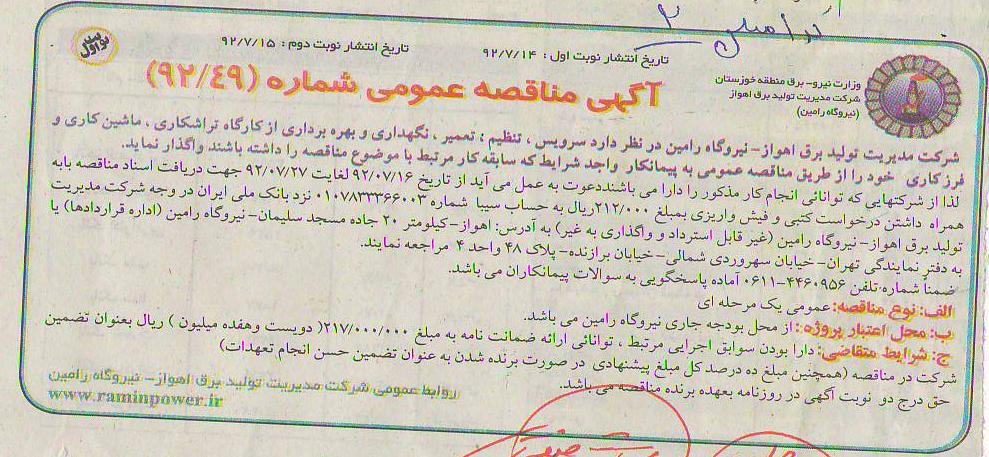 نوبت اول
تاریخ انتشار نوبت اول : ۹۲/۷/۱۴ تاریخ انتشار نوبت دوم : ۹۲/۷/۱۵
وزارت نیرو- برق منطقه خوزستان
شرکت مدیریت تولید برق اهواز
(نیروگاه رامین)
آگهی مناقصه عمومی شماره (۹۲/۴۹)
شرکت مدیریت تولید برق اهواز-نیروگاه رامین در نظر دارد سرویس ، تنظیم ؛ تعمیر ، نگهداری و بهره برداری از کارگاه تراشکاری ، ماشین کاری و
فرز کاری خود را از طریق مناقصه عمومی به پیمانکار واجد شرایط که سابقه کار مرتبط با موضوع مناقصه را داشته باشند واگذار نماید.
لذا از شرکتهایی که توانائی انجام کار مذکور را دارا می باشنددعوت به عمل می آید از تاریخ ۹۲/۰۷/۱۶ لغایت ۹۲/۰۷/۲۷ جهت دریافت اسناد مناقصه بابه
همراه داشتن درخواست کتبی و فیش واریزی بمبلغ ۲۱۲/۰۰۰ریال به حساب سیبا شماره ۰۱۰۷۸۳۳۳۶۶۰۰۳ نزد بانک ملی ایران در وجه شرکت مدیریت
تولید برق اهواز-نیروگاه رامین (غیر قابل استرداد و واگذاری به غیر) به آدرس: اهواز-کیلومتر ۲۰ جاده مسجد سلیمان-نیروگاه رامین (اداره قراردادها) یا
به دفتر نمایندگی تهران-خیابان سهروردی شمالی-خیابان برازنده-پلاک ۴۸ واحد ۴ مراجعه نمایند.
ضمناً شماره تلفن ۴۴۶۰۹۵۶-۰۶۱۱ آماده پاسخگویی به سوالات پیمانکاران می باشد.
الف: نوع مناقصه: عمومی یک مرحله ای
ب: محل اعتبار پروژه: از محل بودجه جاری نیروگاه رامین می باشد.
ج: شرایط متقاضی: دارا بودن سوابق اجرایی مرتبط ، توانائی ارائه ضمانت نامه به مبلغ ۲۱۷/۰۰۰/۰۰۰( دویست وهفده میلیون ) ریال بعنوان تضمین
شرکت در مناقصه (همچنین مبلغ ده درصد کل مبلغ پیشنهادی در صورت برنده شدن به عنوان تضمین حسن انجام تعهدات)
حق درج دو نوبت آگهی در روزنامه بعهده برنده مناقصه می باشد.
روابط عمومی شرکت مدیریت تولید برق اهواز- نیروگاه رامین
www.raminpower.ir